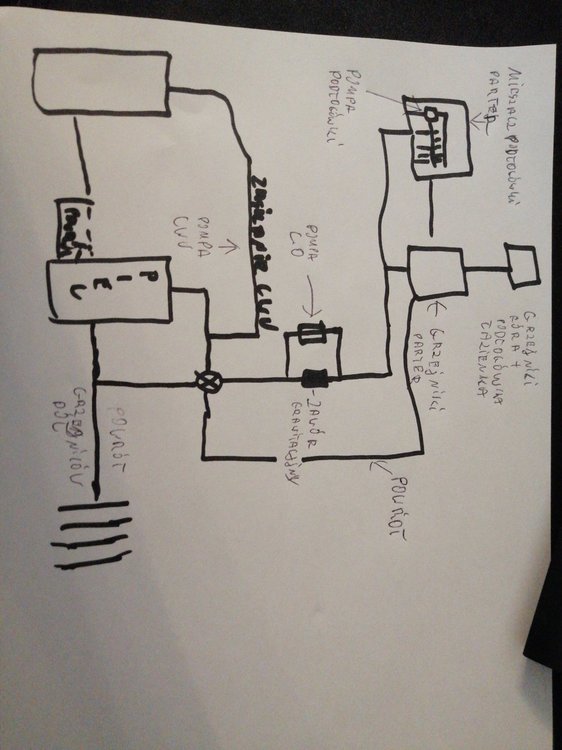 MIESZACZ PODŁOGÓWKI
PARTER
POMPA
PODŁOGÓWKI
GRZEJNIKI
GÓRA +
PODŁOGÓWKA
ŁAZIENKA
GRZEJNIKI
PARTER
POMPA
CO
ZAWÓR
GRAWITACYJNY
POWRÓT
POMPA
CWU
CWU
PIEC
POWRÓT
GRZEJNIKÓW
DÓŁ